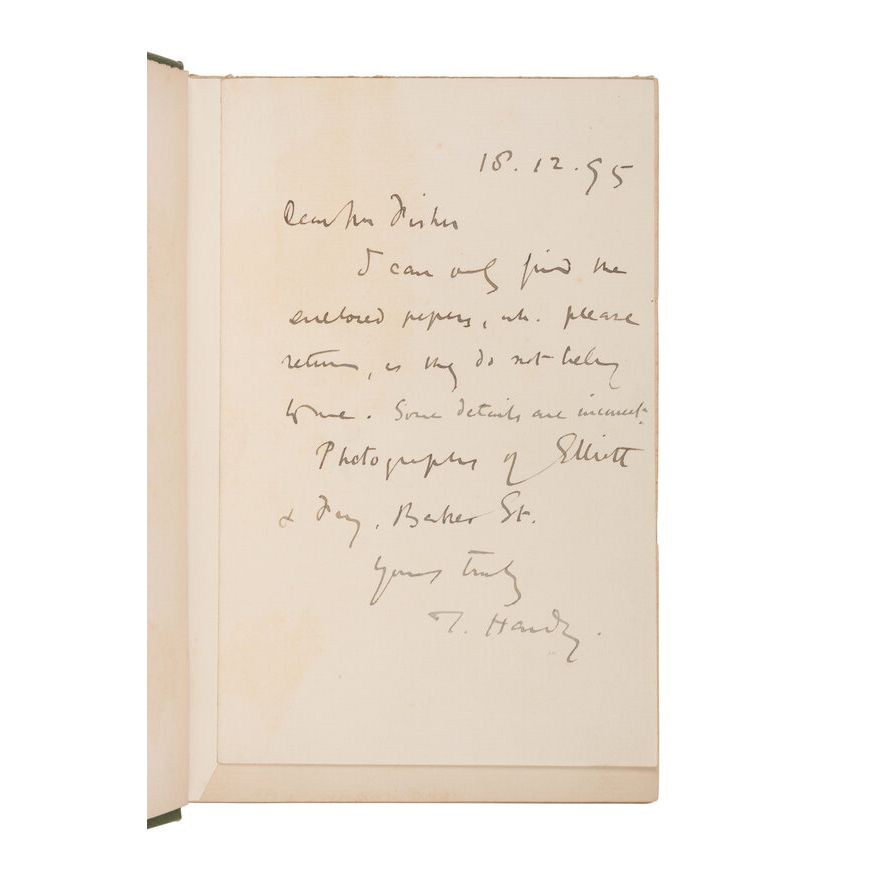 18.12.95
Dear Mr Fisher
I can only find the
enclosed papers, wh. please
return, as they do not belong
to me. Some details are incorrect.
Photographs of Elliott
& Fry, Baker St.
Yours truly
T. Hardy.